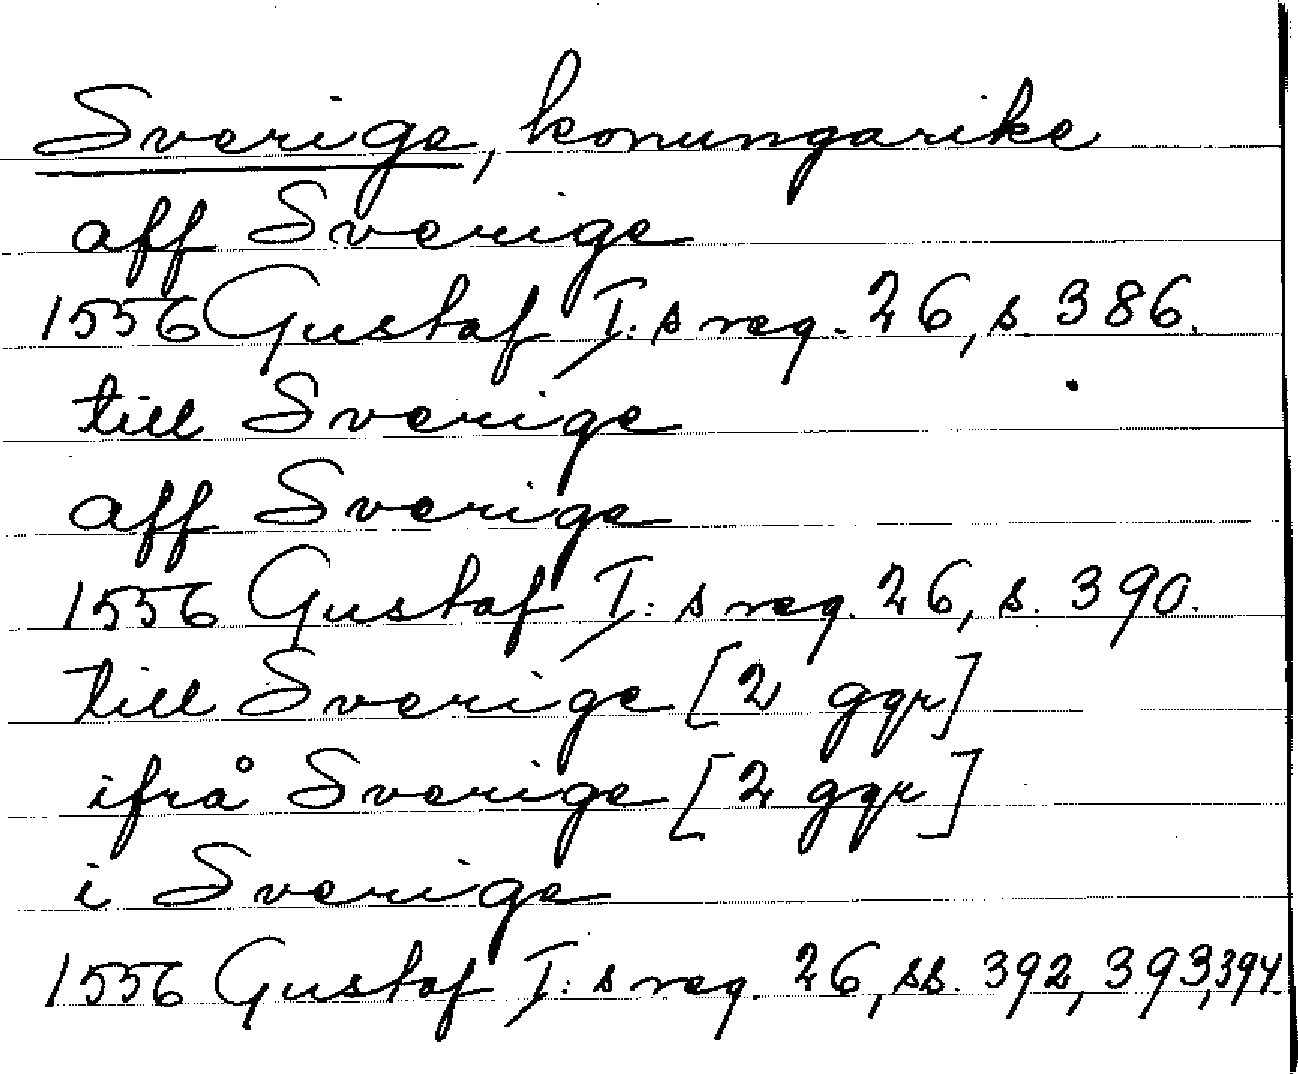 Sverige, konungarike
aff Sverige
1556 Gustaf I:s reg. 26, s. 386.
till Sverige
aff Sverige
1556 Gustaf I:s reg. 26, s. 390.
till Sverige [2 ggr]
ifrå Sverige [2 ggr]
i Sverige
1556 Gustaf I:s reg. 26, ss. 392, 393, 394.